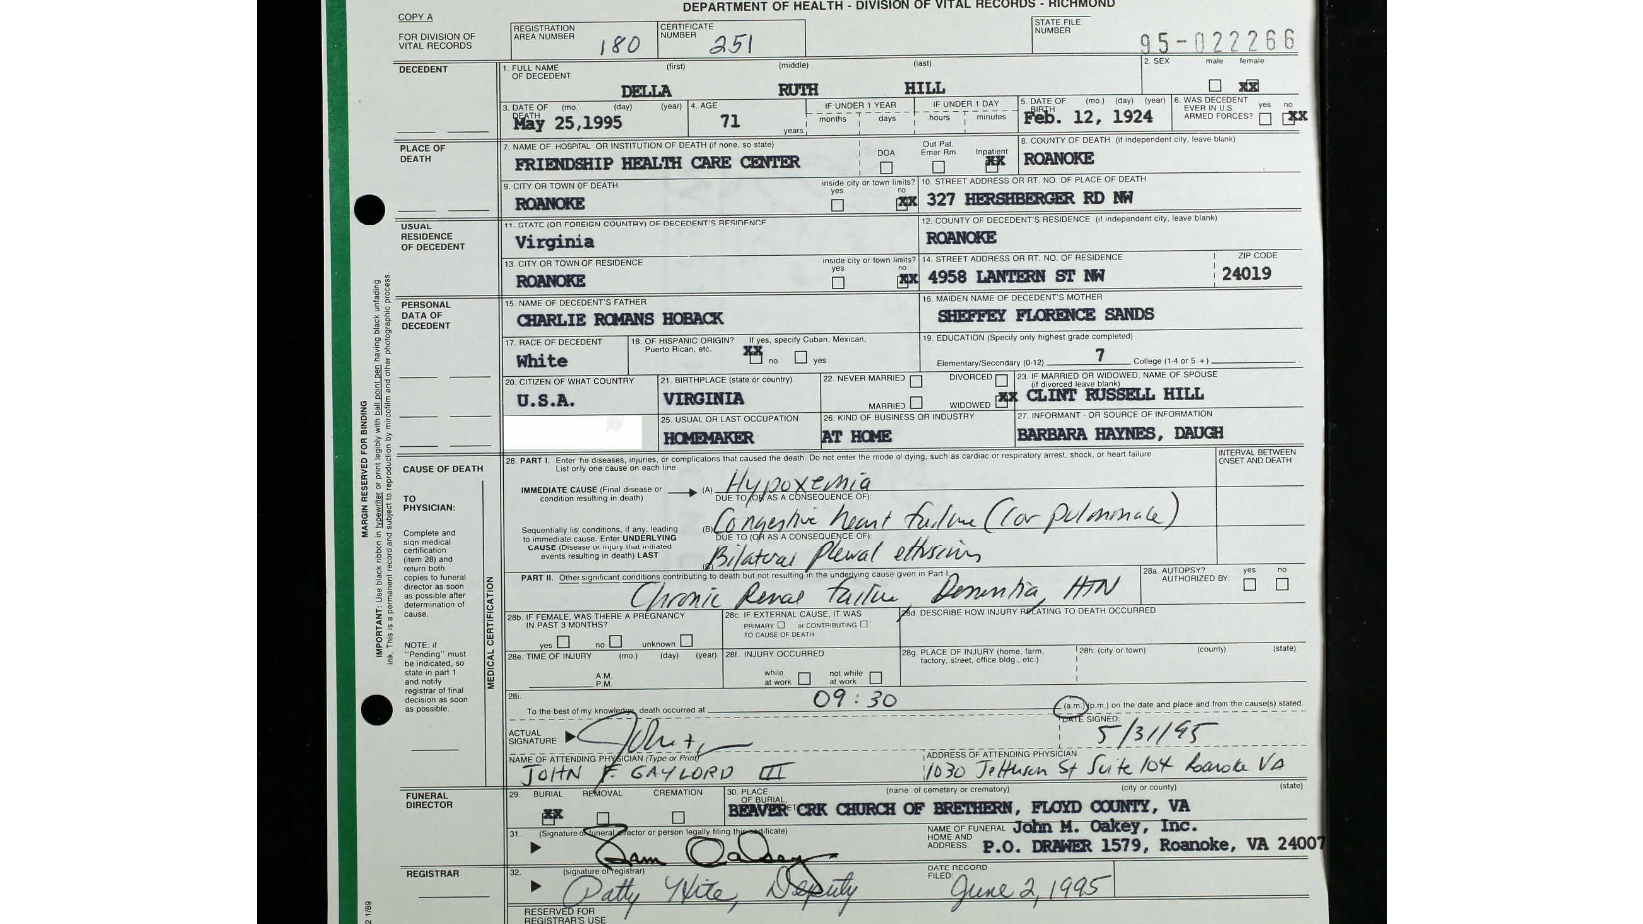 DEPARTMENT OF HEALTH - DIVISION OF VITAL RECORDS - RICHMOND
COPY A
FOR DIVISION OF VITAL RECORDS
REGISTRATION AREA NUMBER 180
CERTIFICATE NUMBER 251
STATE FILE NUMBER 95-022266
DECEDENT
1. FULL NAME OF DECEDENT (first) (middle) (last)
DELLA RUTH HILL
2. SEX male female XX
3. DATE OF DEATH (mo.) (day) (year)
May 25,1995
4. AGE 71 years
IF UNDER 1 YEAR months days
IF UNDER 1 DAY hours minutes
5. DATE OF BIRTH (mo.) (day) (year)
Feb. 12, 1924
6. WAS DECEDENT EVER IN U.S. ARMED FORCES? yes no XX
PLACE OF DEATH
7. NAME OF HOSPITAL OR INSTITUTION OF DEATH (if none, so state)
FRIENDSHIP HEALTH CARE CENTER
DOA Out Pat. Emer Rm Inpatient XX
8. COUNTY OF DEATH (if independent city, leave blank)
ROANOKE
9. CITY OR TOWN OF DEATH
ROANOKE
inside city or town limits? yes no XX
10. STREET ADDRESS OR RT. NO. OF PLACE OF DEATH
327 HERSHBERGER RD NW
USUAL RESIDENCE OF DECEDENT
11. STATE (OR FOREIGN COUNTRY) OF DECEDENT'S RESIDENCE
Virginia
12. COUNTY OF DECEDENT'S RESIDENCE (if independent city, leave blank)
ROANOKE
13. CITY OR TOWN OF RESIDENCE
ROANOKE
inside city or town limits? yes no XX
14. STREET ADDRESS OR RT. NO. OF RESIDENCE
4958 LANTERN ST NW
ZIP CODE
24019
PERSONAL DATA OF DECEDENT
15. NAME OF DECEDENT'S FATHER
CHARLIE ROMANS HOBACK
16. MAIDEN NAME OF DECEDENT'S MOTHER
SHEFFEY FLORENCE SANDS
17. RACE OF DECEDENT
White
18. OF HISPANIC ORIGIN? If yes, specify Cuban, Mexican, Puerto Rican, etc.
XX no yes
19. EDUCATION (Specify only highest grade completed)
Elementary/Secondary (0-12) 7 College (1-4 or 5 +)
20. CITIZEN OF WHAT COUNTRY
U.S.A.
21. BIRTHPLACE (state or country)
VIRGINIA
22. NEVER MARRIED DIVORCED
MARRIED WIDOWED XX
23. IF MARRIED OR WIDOWED, NAME OF SPOUSE (if divorced leave blank)
CLINT RUSSELL HILL
25. USUAL OR LAST OCCUPATION
HOMEMAKER
26. KIND OF BUSINESS OR INDUSTRY
AT HOME
27. INFORMANT - OR SOURCE OF INFORMATION
BARBARA HAYNES, DAUGH
MARGIN RESERVED FOR BINDING
IMPORTANT: Use black ribbon in typewriter or print legibly with ball point pen having black unfading
ink. This is a permanent record and subject to reproduction by microfilm and other photographic process.
CAUSE OF DEATH
TO PHYSICIAN:
Complete and sign medical certification (item 28) and return both copies to funeral director as soon as possible after determination of cause.
NOTE: if "Pending" must be indicated, so state in part 1 and notify registrar of final decision as soon as possible.
MEDICAL CERTIFICATION
28. PART I. Enter the diseases, injuries, or complicatons that caused the death. Do not enter the mode of dying, such as cardiac or respiratory arrest, shock, or heart failure.
List only one cause on each line
INTERVAL BETWEEN ONSET AND DEATH
IMMEDIATE CAUSE (Final disease or condition resulting in death) (A) Hypoxemia
DUE TO (OR AS A CONSEQUENCE OF):
Sequentially list conditions, if any, leading to immediate cause. Enter UNDERLYING CAUSE (Disease or injury that initiated events resulting in death) LAST
(B) Congestive heart failure (Cor pulmonale)
DUE TO (OR AS A CONSEQUENCE OF):
Bilateral Pleural effusions
PART II. Other significant conditions contributing to death but not resulting in the underlying cause given in Part I.
Chronic Renal Failure Dementia, HTN
28a. AUTOPSY? AUTHORIZED BY: yes no
28b. IF FEMALE, WAS THERE A PREGNANCY IN PAST 3 MONTHS?
yes no unknown
28c. IF EXTERNAL CAUSE, IT WAS
PRIMARY or CONTRIBUTING
TO CAUSE OF DEATH
28d. DESCRIBE HOW INJURY RELATING TO DEATH OCCURRED
28e. TIME OF INJURY (mo.) (day) (year)
A.M.
P.M.
28f. INJURY OCCURRED
while at work not while at work
28g. PLACE OF INJURY (home, farm, factory, street, office bldg., etc.)
28h. (city or town) (county) (state)
28i.
To the best of my knowledge, death occurred at 09:30 (a.m.) (p.m.) on the date and place and from the cause(s) stated.
ACTUAL SIGNATURE
DATE SIGNED:
5/31/95
NAME OF ATTENDING PHYSICIAN (Type or Print)
JOHN F. GAYLORD III
ADDRESS OF ATTENDING PHYSICIAN
1030 Jefferson St Suite 104 Roanoke VA
FUNERAL DIRECTOR
29. BURIAL REMOVAL CREMATION
XX
30. PLACE OF BURIAL, ETC. (name of cemetery or crematory) (city or county) (state)
BEAVER CRK CHURCH OF BRETHERN, FLOYD COUNTY, VA
31. (Signature of funeral director or person legally filing this certificate)
Sam Oakey
NAME OF FUNERAL HOME AND ADDRESS:
John M. Oakey, Inc.
P.O. DRAWER 1579, Roanoke, VA 24007
REGISTRAR
32. (signature of registrar)
Patty Hite, Deputy
DATE RECORD FILED:
June 2, 1995
RESERVED FOR REGISTRAR'S USE
2 1/89